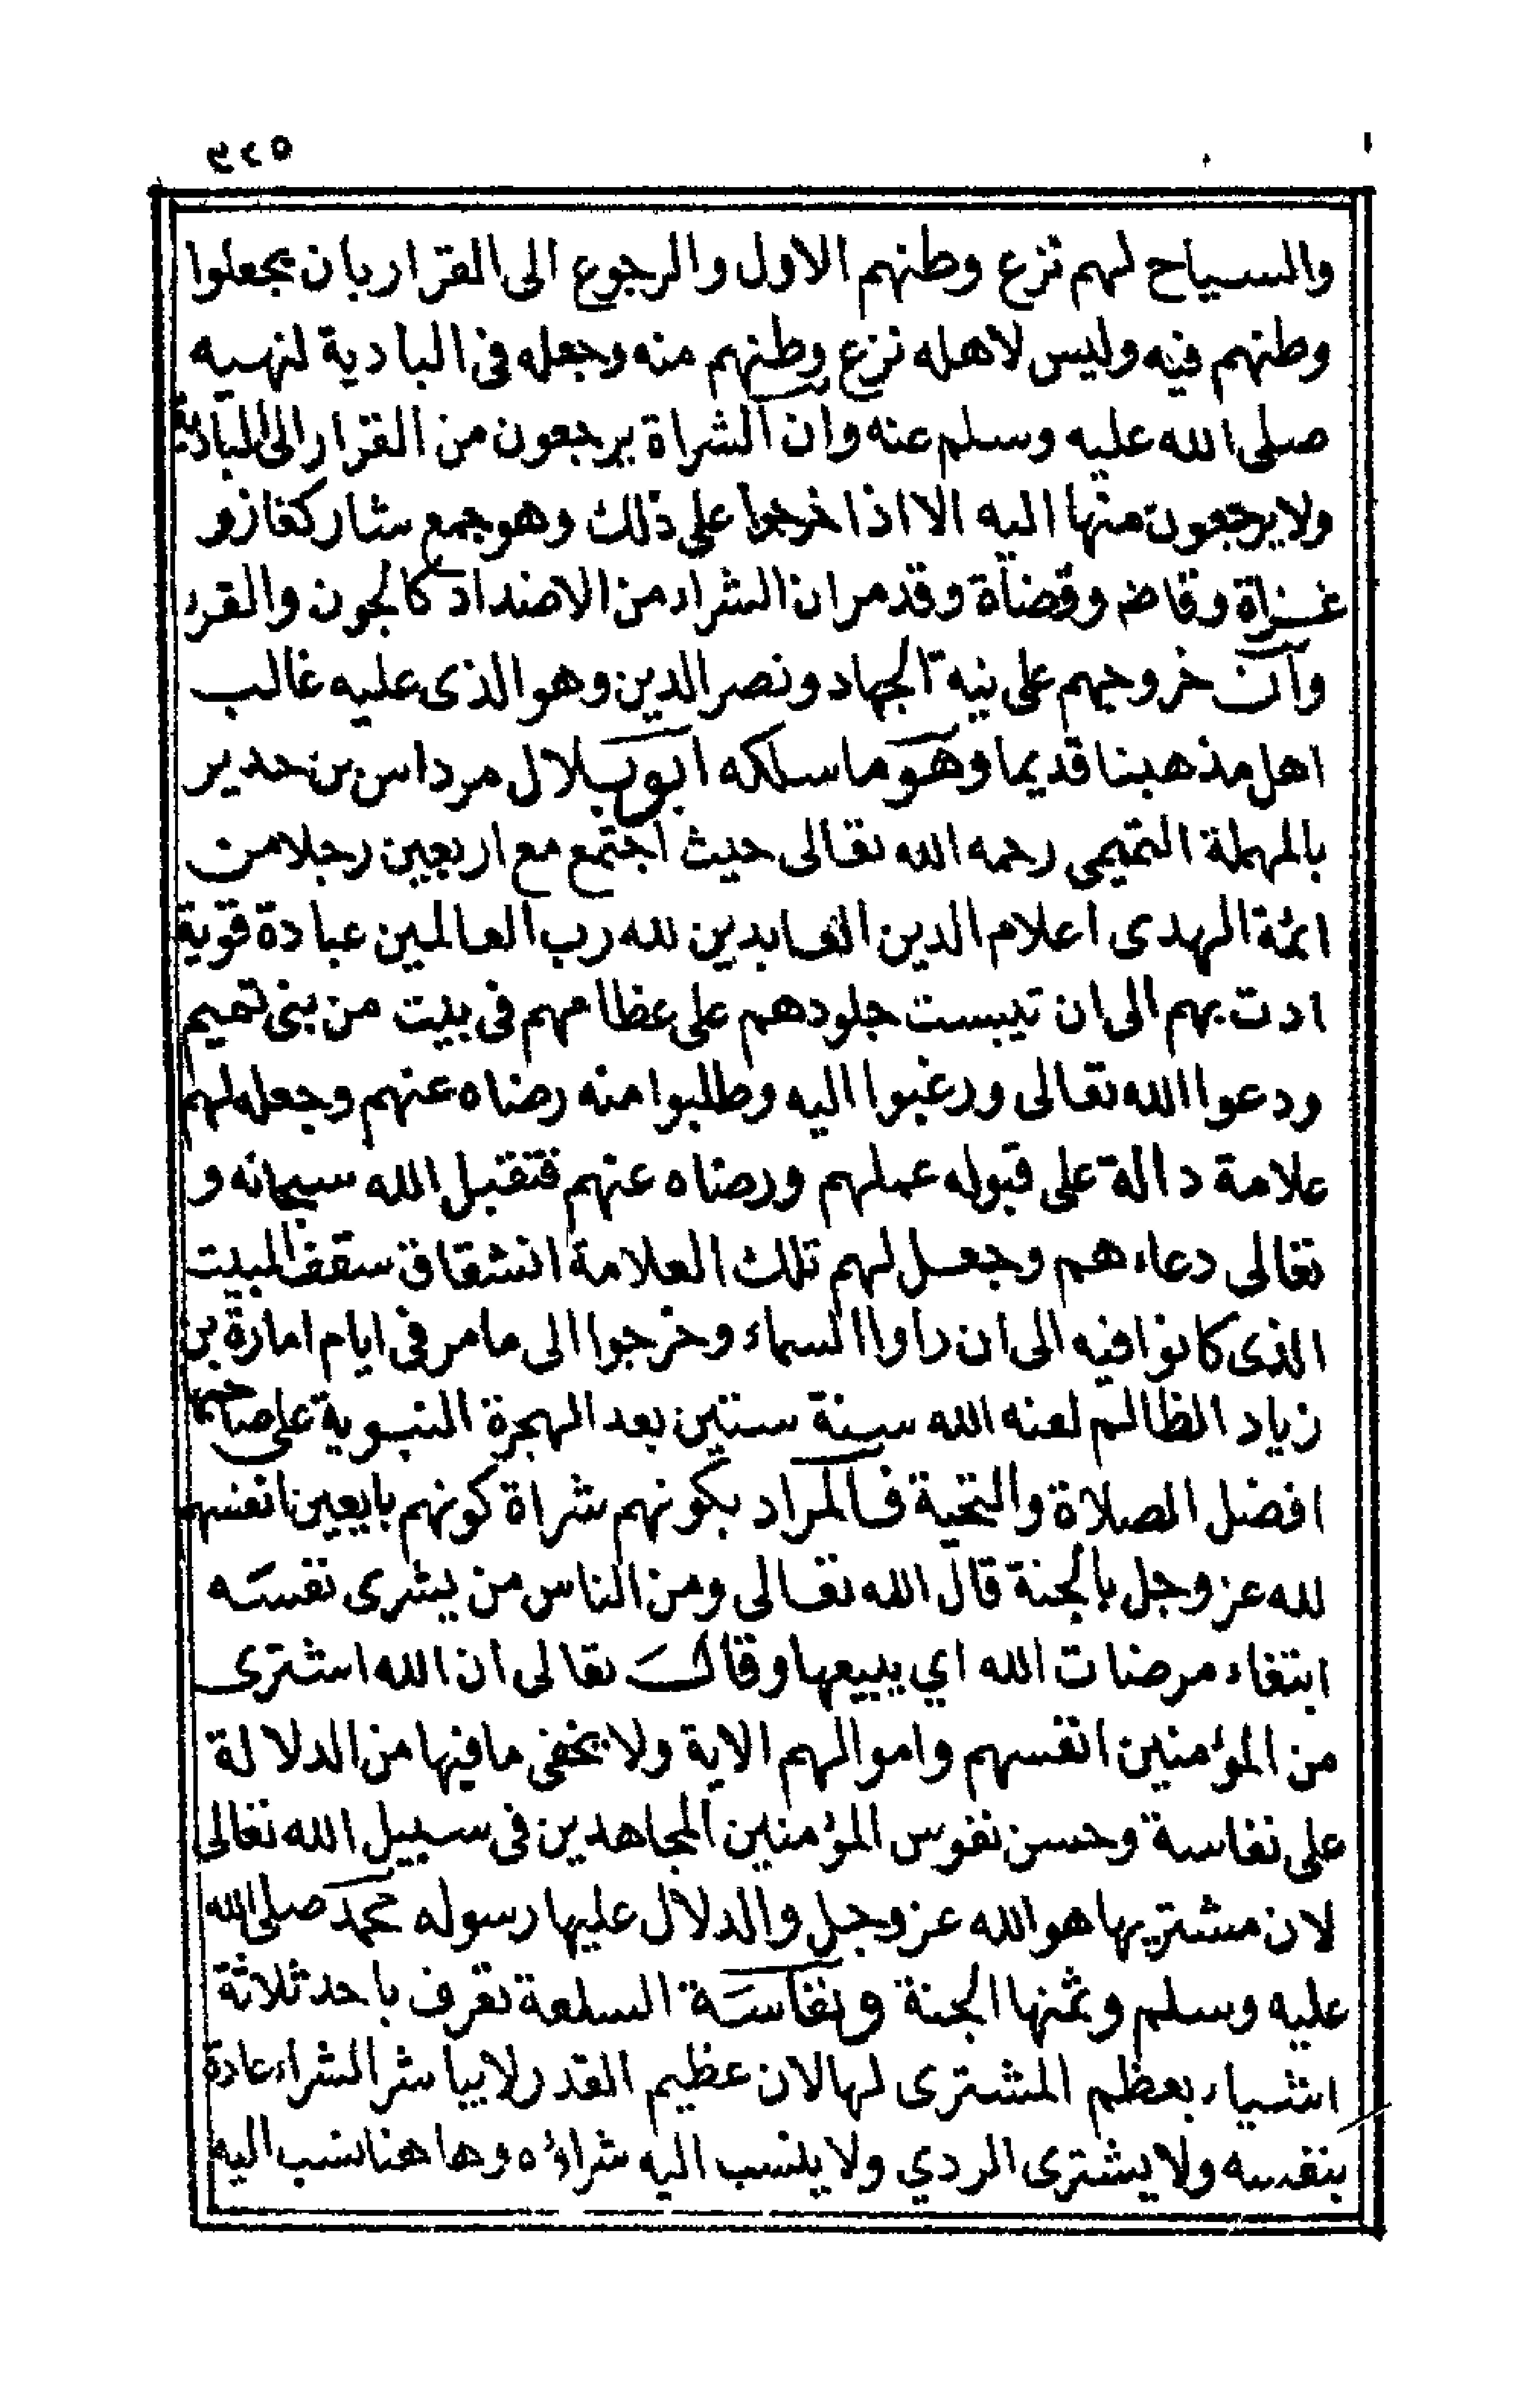 ٩٢٥
والسياح لهم نزع وطنهم الاول والرجوع الى القرار بان يجعلوا
وطنهم فيه وليس لاهله نزع وطنهم منه وجعله فى البادية لنهيه
صلى الله عليه وسلم عنه وان الشراة يرجعون من القرار الى البادية
ولا يرجعون منها اليه الا اذا خرجوا على ذلك وهو جمع شار كغاز و
غزاة وقاض وقضاة وقد مر ان الشراء من الاضداد كالجون والقرء
وان خروجهم على نية الجهاد ونصر الدين وهو الذى عليه غالب
اهل مذهبنا قديما وهو ما سلكه ابو بلال مرداس بن حدير
بالمهملة التميمى رحمه الله تعالى حيث اجتمع مع اربعين رجلا من
ائمة الهدى اعلام الدين العابدين لله رب العالمين عبادة قوية
ادت بهم الى ان تيبست جلودهم على عظامهم فى بيت من بنى تميم
ودعوا الله تعالى ورغبوا اليه وطلبوا منه رضاه عنهم وجعله لهم
علامة دالة على قبوله عملهم ورضاه عنهم فتقبل الله سبحانه و
تعالى دعاءهم وجعل لهم تلك العلامة انشقاق سقف البيت
الذى كانوا فيه الى ان راوا السماء وخرجوا الى ما مر فى ايام امارة بن
زياد الظالم لعنه الله سنة ستين بعد الهجرة النبوية على صاحبها
افضل الصلاة والتحية فالمراد بكونهم شراة كونهم بايعين انفسهم
لله عز وجل بالجنة قال الله تعالى ومن الناس من يشرى نفسه
ابتغاء مرضات الله اي يبيعها وقال تعالى ان الله اشترى
من المؤمنين انفسهم واموالهم الاية ولا يخفى ما فيها من الدلالة
على نفاسة وحسن نفوس المؤمنين المجاهدين فى سبيل الله تعالى
لان مشتريها هو الله عز وجل والدلال عليها رسوله محمد صلى الله
عليه وسلم وثمنها الجنة ونفاسة السلعة تعرف باحد ثلاثة
اشياء بعظم المشترى لها لان عظيم القدر لا يباشر الشراء عادة
بنفسه ولا يشترى الردي ولا ينسب اليه شراؤه وها هنا نسب اليه